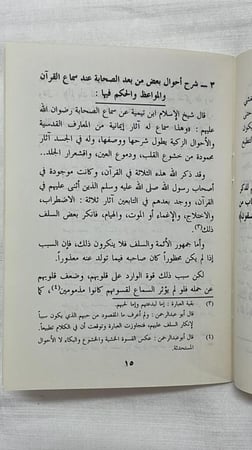 ٣ ـ شرح أحوال بعض من بعد الصحابة عند سماع القرآن
والمواعظ والحكم فيها :
قال شيخ الإسلام ابن تيمية عن سماع الصحابة رضوان الله
عليهم : «وهذا سماع له آثار إيمانية من المعارف القدسية
والأحوال الزكية يطول شرحها ووصفها، وله في الجسد آثار
محمودة من خشوع القلب، ودموع العين، واقشعرار الجلد..
وقد ذكر الله هذه الثلاثة في القرآن، وكانت موجودة في
أصحاب رسول الله صلى الله عليه وسلم الذين أثنى عليهم في
القرآن، ووجد بعدهم في التابعين آثار ثلاثة : الاضطراب،
والاختلاج، والإغماء أو الموت، والهيام، فأنكر بعض السلف
ذلك(٣).
وأما جمهور الأئمة والسلف فلا ينكرون ذلك، فإن السبب
إذا لم يكن محظوراً كان صاحبه فيما تولد عنه معذوراً.
لكن سبب ذلك قوة الوارد على قلوبهم، وضعف قلوبهم
عن حمله فلو لم يؤثر السماع لقسوتهم كانوا مذمومين(٤)، كما
(٢) بقية العبارة : إما لبدعتهم وإما لحبهم.
(٣) قال أبو عبدالرحمن : ولم أعرف ما المقصود من حبهم الذي يكون سبباً
لإنكار السلف عليهم، فتجاوزت العبارة وتوقعت أن في الكلام تطبيعاً.
(٤) قال أبو عبدالرحمن : عكس القسوة الخشية والخشوع والبكاء، لا الأحوال
المستحدثة.
١٥